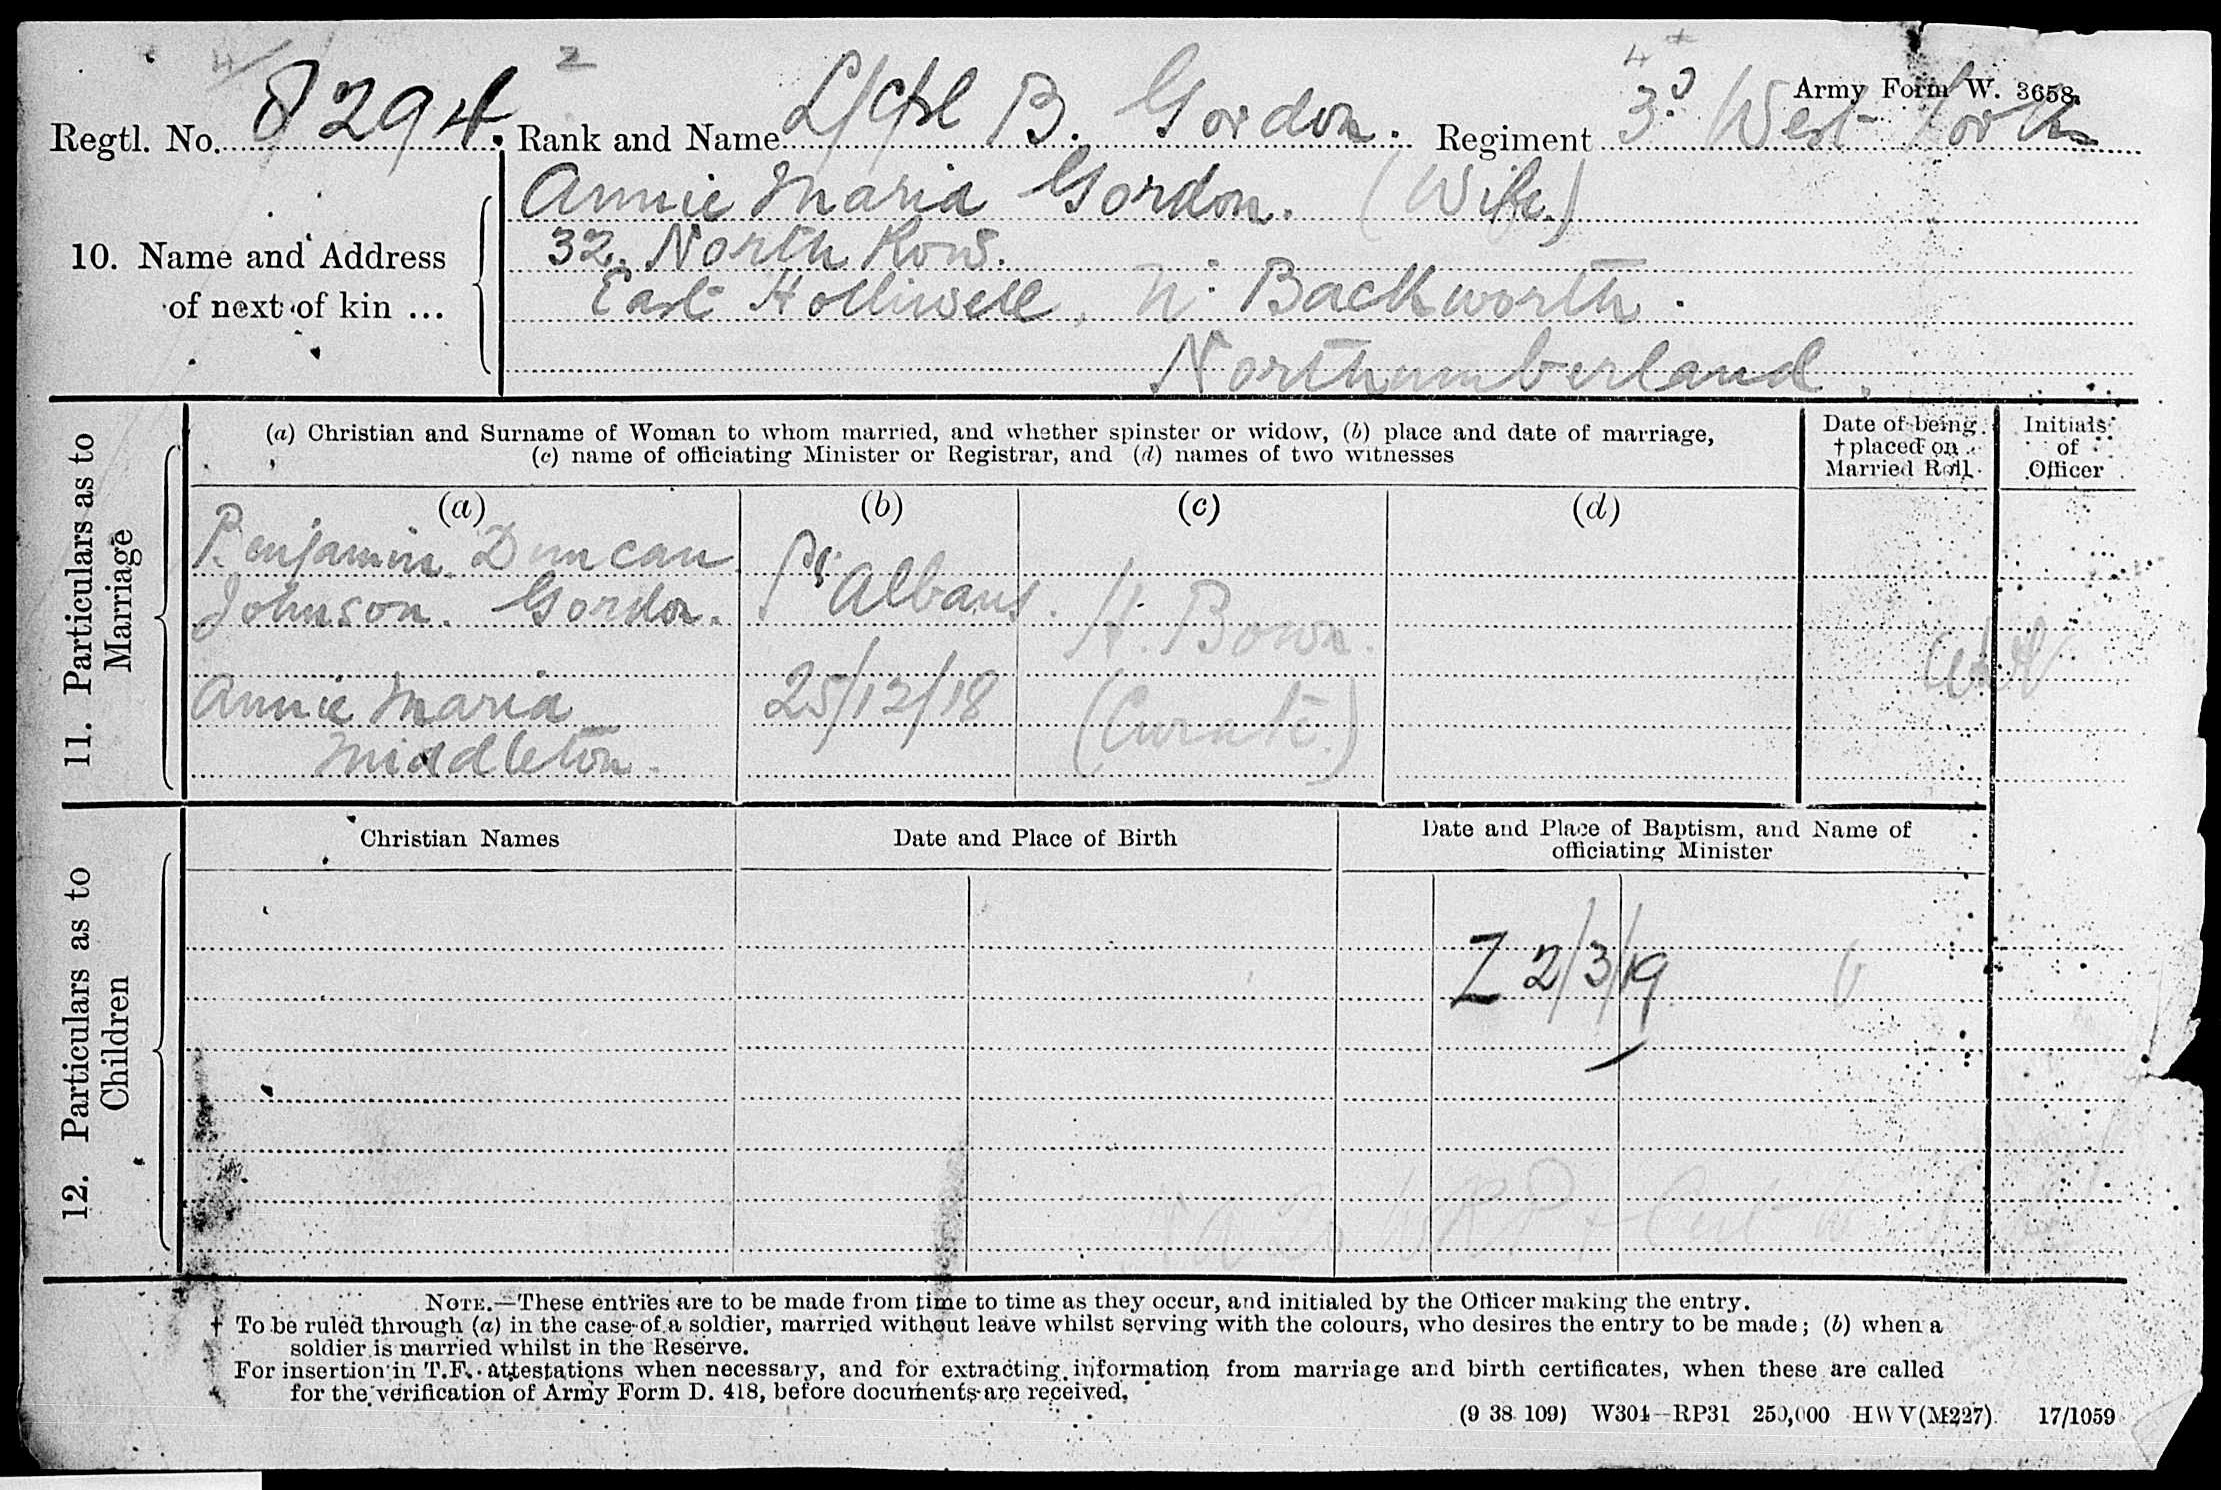 4/ 2 4
Army Form W. 3658.
Regtl. No. 8294. Rank and Name L/Cpl B. Gordon. Regiment 3rd West Yorks
Annie Maria Gordon. (Wife.)
10. Name and Address of next of kin ...
32. North Row.
East Holliwell, Nr. Backworth.
Northumberland.
11. Particulars as to Marriage
(a) Christian and Surname of Woman to whom married, and whether spinster or widow, (b) place and date of marriage,
(c) name of officiating Minister or Registrar, and (d) names of two witnesses
Date of being
† placed on
Married Roll
Initials
of
Officer
(a) (b) (c) (d)
Benjamin Duncan
Johnson. Gordon.
Annie Maria
Middleton.
St Albans.
25/12/18
H. Bown.
(Curate.)
12. Particulars as to Children
Christian Names
Date and Place of Birth
Date and Place of Baptism, and Name of
officiating Minister
Z 2/3/19
NOTE.—These entries are to be made from time to time as they occur, and initialed by the Officer making the entry.
† To be ruled through (a) in the case of a soldier, married without leave whilst serving with the colours, who desires the entry to be made; (b) when a
soldier is married whilst in the Reserve.
For insertion in T.F. attestations when necessary, and for extracting information from marriage and birth certificates, when these are called
for the verification of Army Form D. 418, before documents are received.
(9 38 109) W304—RP31 250,000 HWV(M227) 17/1059